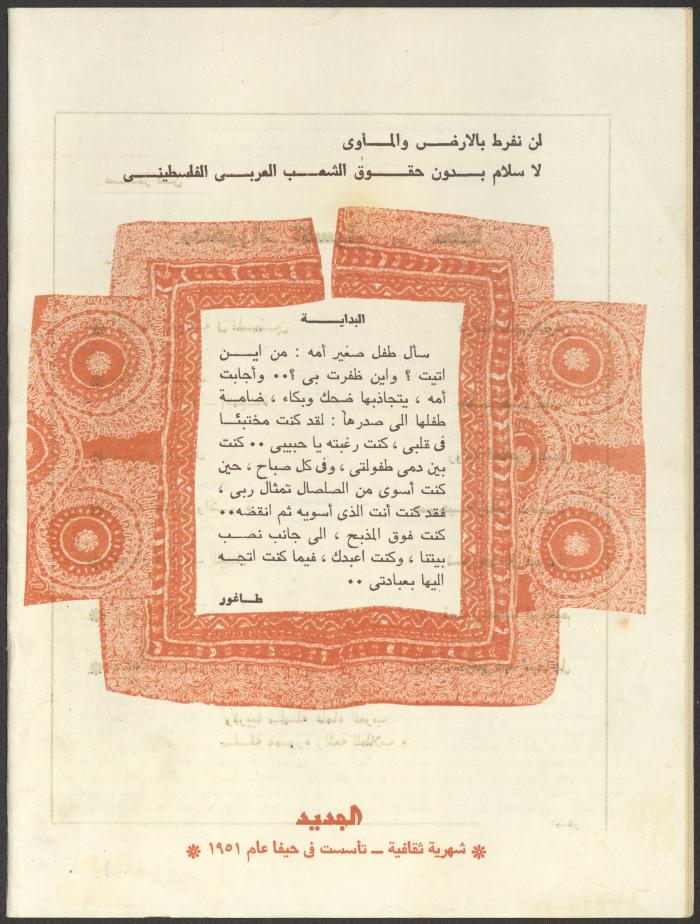 لن نفرط بالارض والمأوى
لا سلام بدون حقوق الشعب العربى الفلسطينى
البداية
سأل طفل صغير أمه : من اين
اتيت ؟ واين ظفرت بى ؟٠٠ وأجابت
أمه ، يتجاذبها ضحك وبكاء ، ضامة
طفلها الى صدرها : لقد كنت مختبئا
فى قلبى ، كنت رغبته يا حبيبى ٠٠ كنت
بين دمى طفولتى ، وفى كل صباح ، حين
كنت أسوى من الصلصال تمثال ربى ،
فقد كنت أنت الذى أسويه ثم انقضه٠٠
كنت فوق المذبح ، الى جانب نصب
بيتنا ، وكنت اعبدك ، فيما كنت اتجه
اليها بعبادتى ٠٠
طاغور
الجديد
* شهرية ثقافية ـ تأسست فى حيفا عام ١٩٥١ *